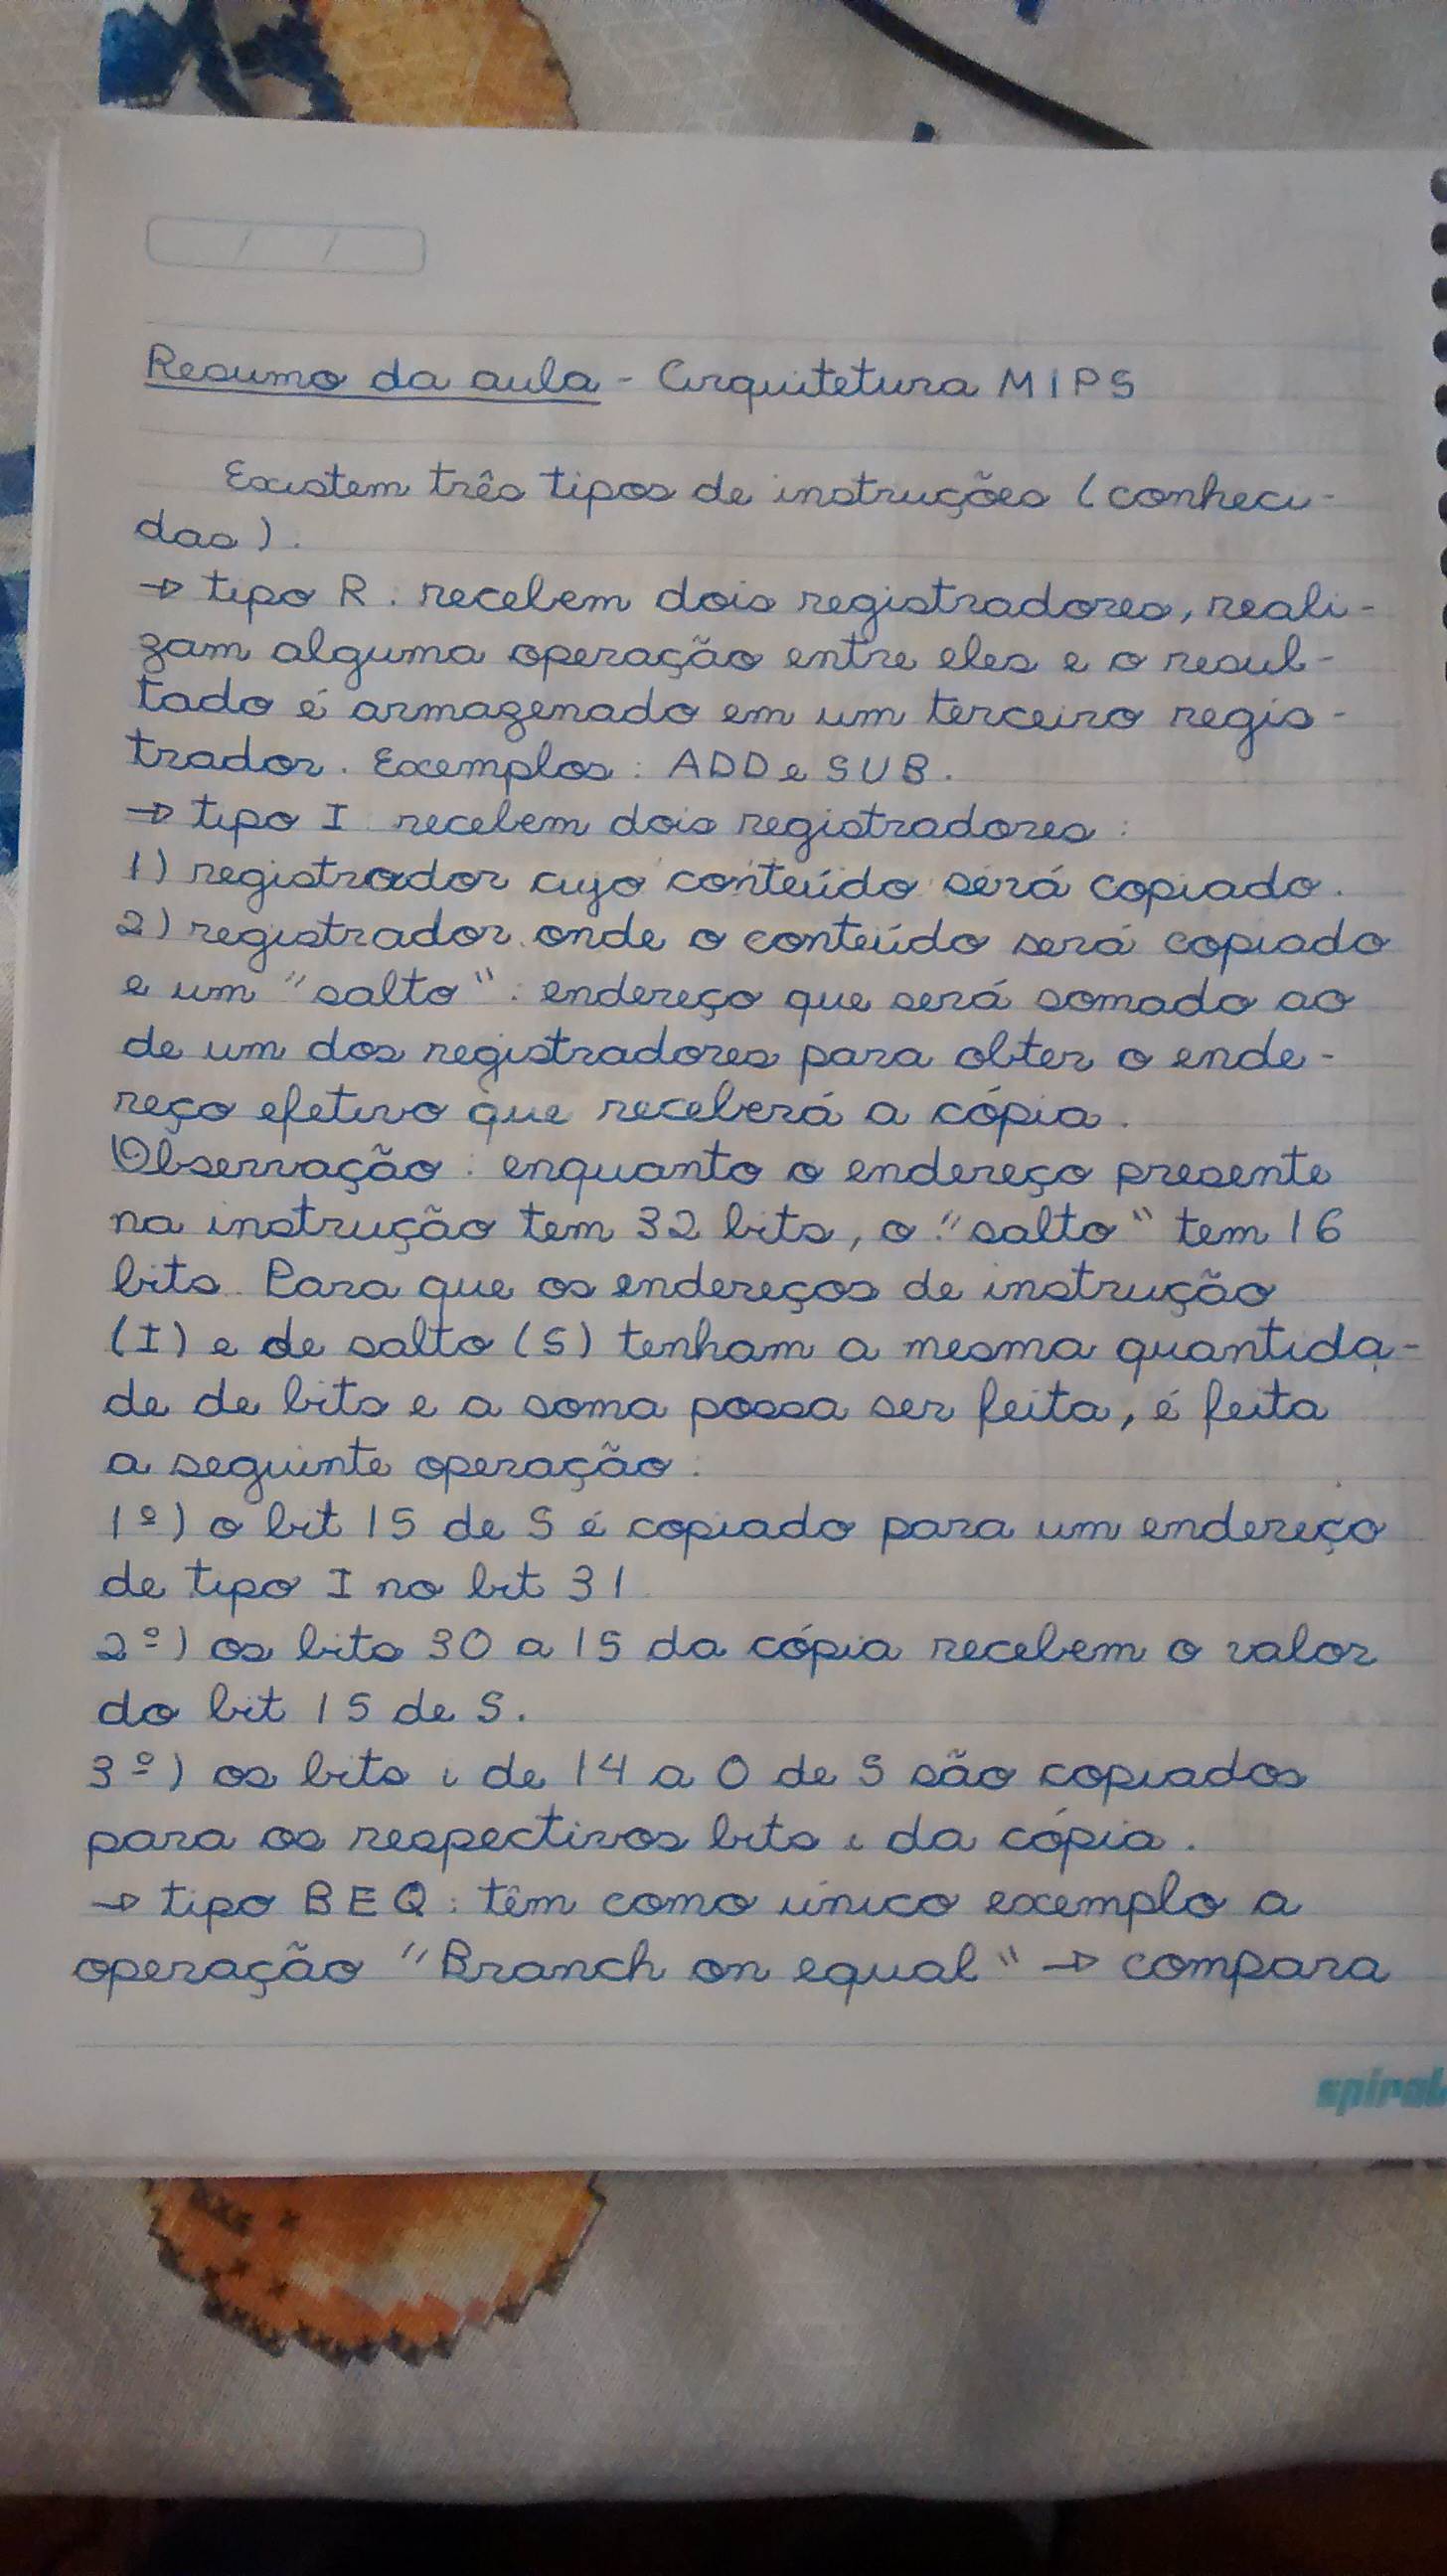 Resumo da aula - Arquitetura MIPS
Existem três tipos de instruções (conheci-
das).
→ tipo R: recebem dois registradores, reali-
zam alguma operação entre eles e o resul-
tado é armazenado em um terceiro regis-
trador. Exemplos: ADD e SUB.
→ tipo I: recebem dois registradores:
1) registrador cujo conteúdo será copiado.
2) registrador onde o conteúdo será copiado
e um "salto": endereço que será somado ao
de um dos registradores para obter o ende-
reço efetivo que receberá a cópia.
Observação: enquanto o endereço presente
na instrução tem 32 bits, o "salto" tem 16
bits. Para que os endereços de instrução
(I) e de salto (S) tenham a mesma quantida-
de de bits e a soma possa ser feita, é feita
a seguinte operação:
1º) o bit 15 de S é copiado para um endereço
de tipo I no bit 31
2º) os bits 30 a 15 da cópia recebem o valor
do bit 15 de S.
3º) os bits i de 14 a 0 de S são copiados
para os respectivos bits i da cópia.
→ tipo BEQ: têm como único exemplo a
operação "Branch on equal" → compara
spiral